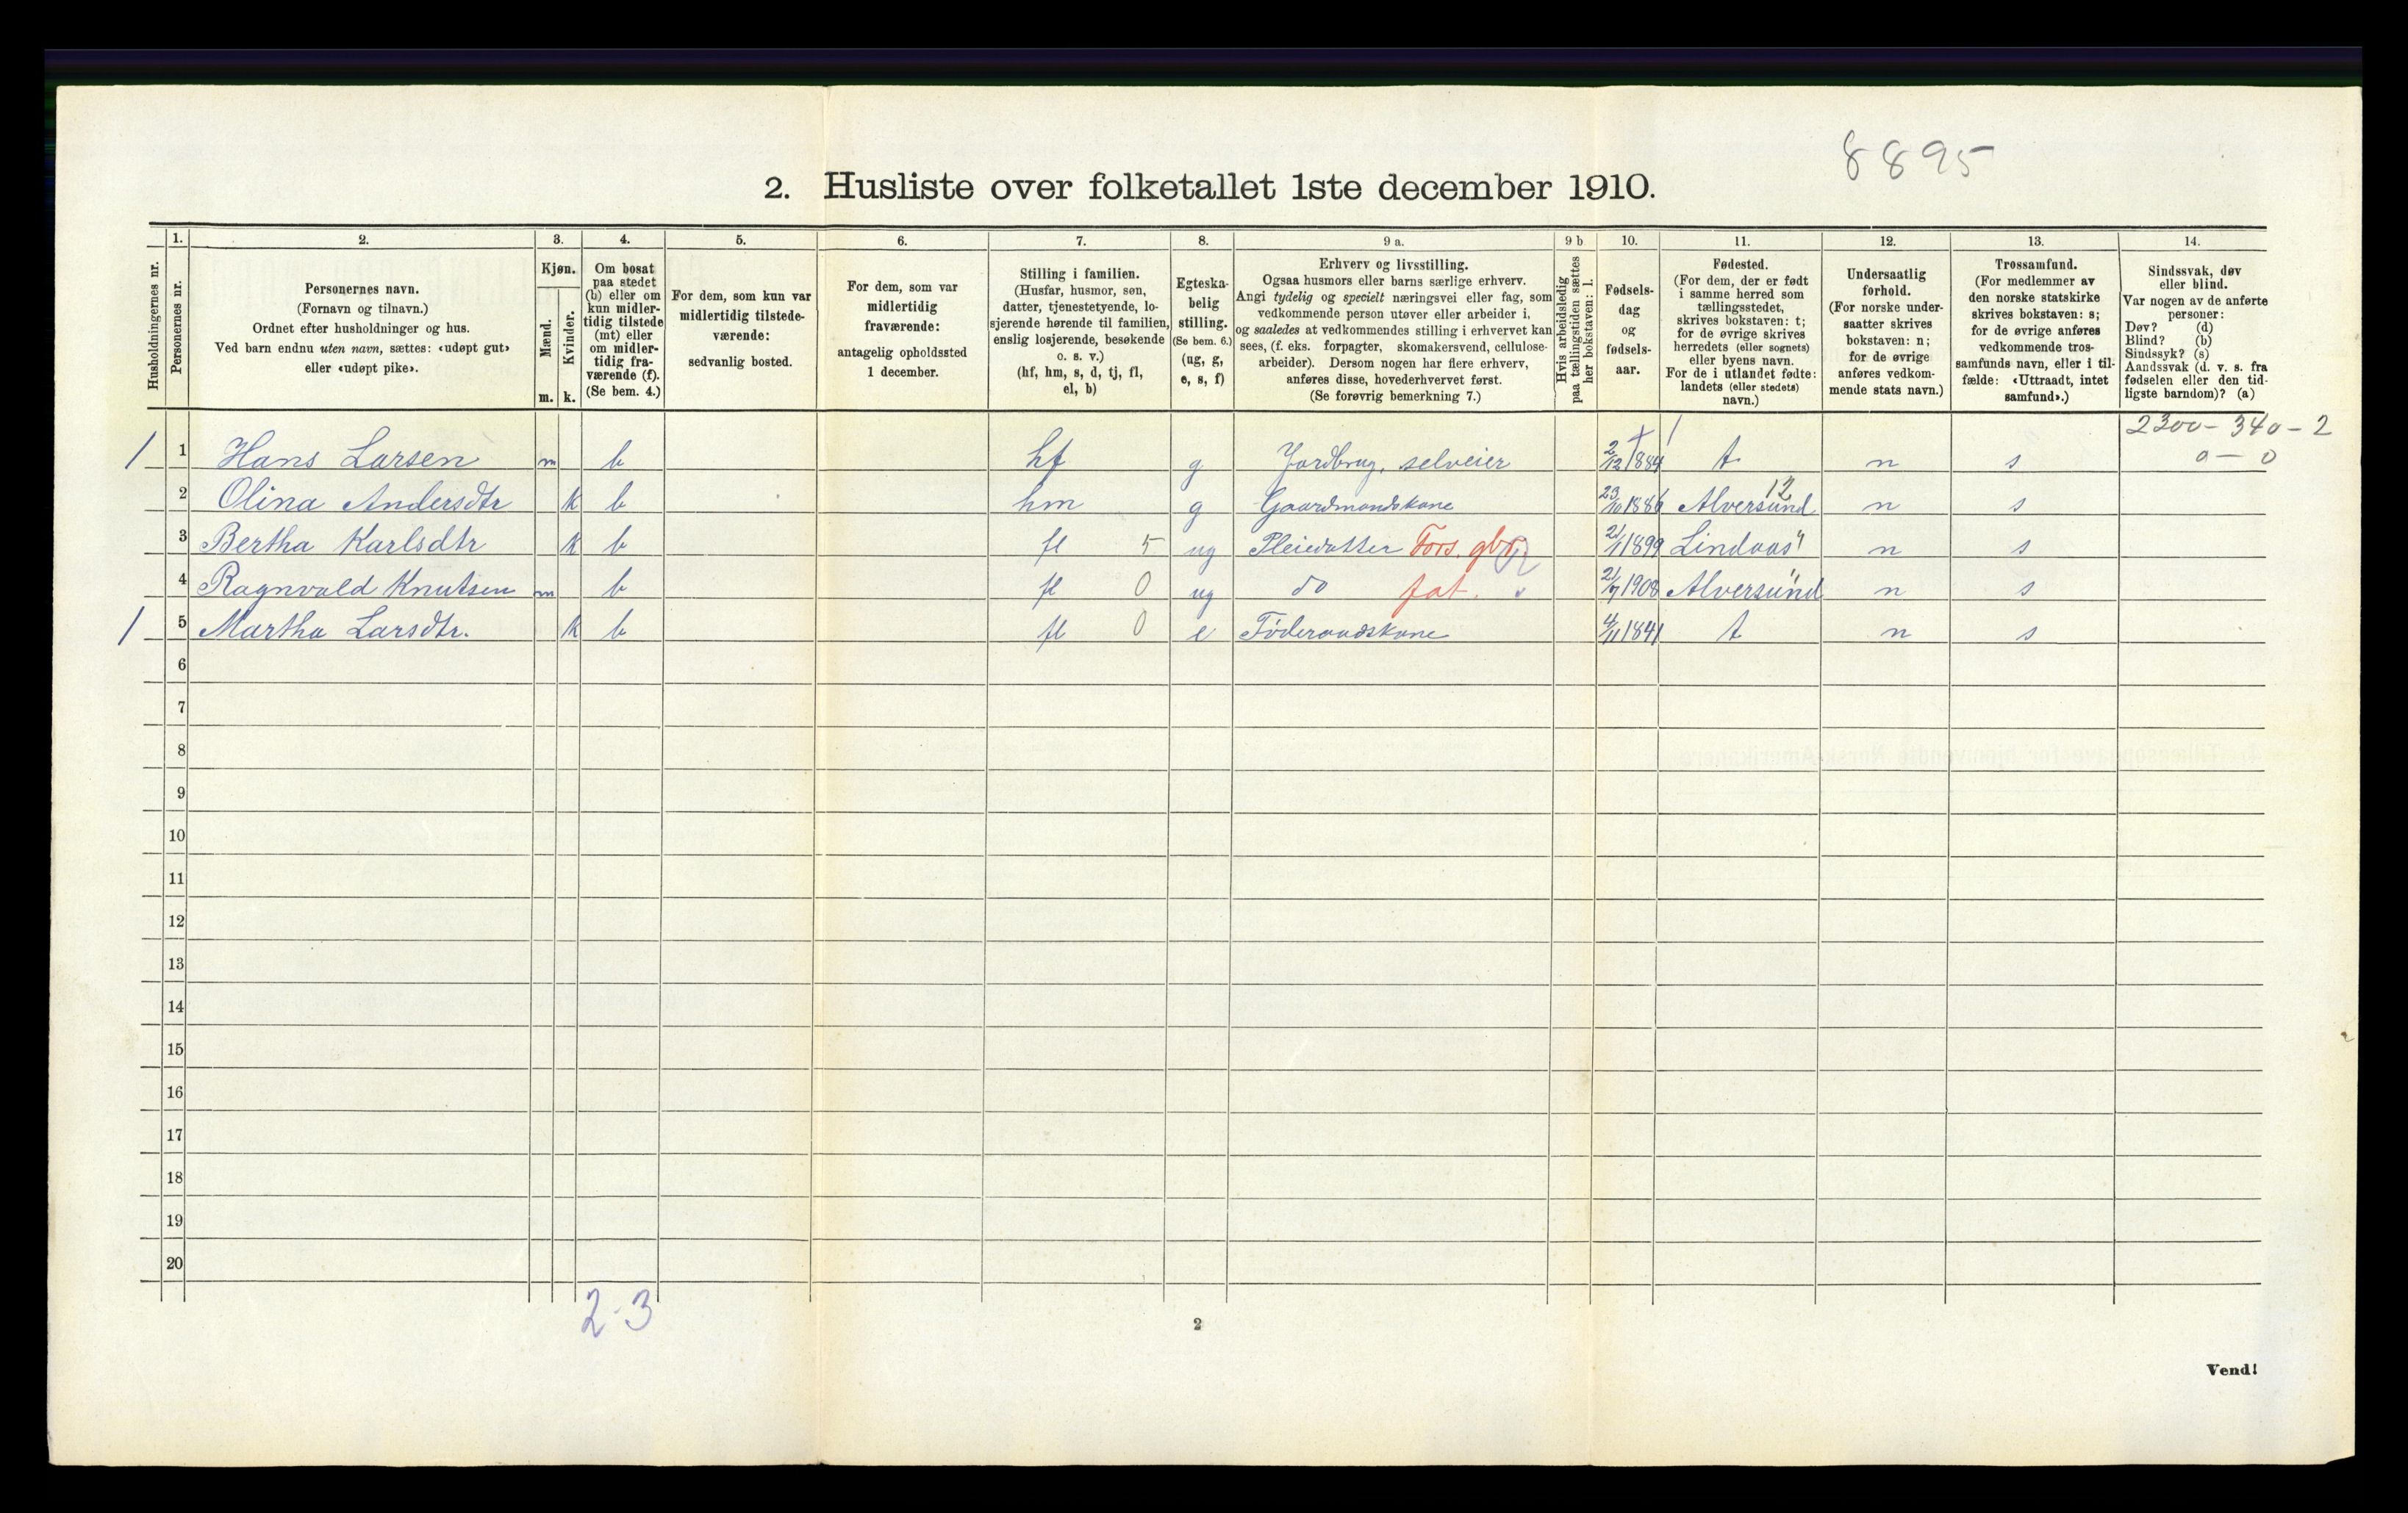 8895
2. Husliste over folketallet 1ste december 1910.
Husholdningernes nr.
1.
Personernes nr.
2.
Personernes navn.
(Fornavn og tilnavn.)
Ordnet efter husholdninger og hus.
Ved barn endnu uten navn, sættes: «udøpt gut»
eller «udøpt pike».
3.
Kjøn.
Mænd.
Kvinder.
m. k.
4.
Om bosat
paa stedet
(b) eller om
kun midler-
tidig tilstede
(mt) eller
om midler-
tidig fra-
værende (f).
(Se bem. 4.)
5.
For dem, som kun var
midlertidig tilstede-
værende:
sedvanlig bosted.
6.
For dem, som var
midlertidig
fraværende:
antagelig opholdssted
1 december.
7.
Stilling i familien.
(Husfar, husmor, søn,
datter, tjenestetyende, lo-
sjerende hørende til familien,
enslig losjerende, besøkende
o. s. v.)
(hf, hm, s, d, tj, fl,
el, b)
8.
Egteska-
belig
stilling.
(Se bem. 6.)
(ug, g,
e, s, f)
9 a.
Erhverv og livsstilling.
Ogsaa husmors eller barns særlige erhverv.
Angi tydelig og specielt næringsvei eller fag, som
vedkommende person utøver eller arbeider i,
og saaledes at vedkommendes stilling i erhvervet kan
sees, (f. eks. forpagter, skomakersvend, cellulose-
arbeider). Dersom nogen har flere erhverv,
anføres disse, hovederhvervet først.
(Se forøvrig bemerkning 7.)
9 b
Hvis arbeidsledig
paa tællingstiden sættes
her bokstaven: l.
10.
Fødsels-
dag
og
fødsels-
aar.
11.
Fødested.
(For dem, der er født
i samme herred som
tællingsstedet,
skrives bokstaven: t;
for de øvrige skrives
herredets (eller sognets)
eller byens navn.
For de i utlandet fødte:
landets (eller stedets)
navn.)
12.
Undersaatlig
forhold.
(For norske under-
saatter skrives
bokstaven: n;
for de øvrige
anføres vedkom-
mende stats navn.)
13.
Trossamfund.
(For medlemmer av
den norske statskirke
skrives bokstaven: s;
for de øvrige anføres
vedkommende tros-
samfunds navn, eller i til-
fælde: «Uttraadt, intet
samfund».)
14.
Sindssvak, døv
eller blind.
Var nogen av de anførte
personer:
Døv? (d)
Blind? (b)
Sindssyk? (s)
Aandssvak (d. v. s. fra
fødselen eller den tid-
ligste barndom)? (a)
2300 - 340 - 2
0 - 0
1 1 Hans Larsen m b hf g Jordbrug, selveier 2/12 1884 t n s
2 Olina Andersdtr k b hm g Gaardmandskone 23/10 1886 Alversund 12 n s
3 Bertha Karlsdtr k b fl 5 ug Pleiedatter Fors. gbr 2/1 1899 Lindaas n s
4 Ragnvald Knutsen m b fl 0 ug do fat. 21/7 1908 Alversund n s
1 5 Martha Larsdtr. k b fl 0 e Føderaadskone 4/11 1841 t n s
6
7
8
9
10
11
12
13
14
15
16
17
18
19
20
2-3
2
Vend!